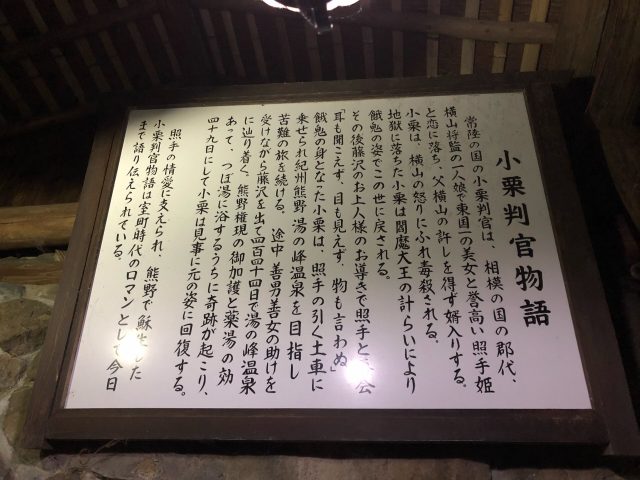 小栗判官物語
常陸の国の小栗判官は、相模の国の郡代、
横山将監の一人娘で東国一の美女と誉高い照手姫
と恋に落ち、父横山の許しを得ず婿入りする。
小栗は、横山の怒りにふれ毒殺される。
地獄に落ちた小栗は閻魔大王の計らいにより
餓鬼の姿でこの世に戻される。
その後藤沢のお上人様のお導きで照手と 会
「耳も聞こえず、目も見えず、物も言わぬ」
餓鬼の身となった小栗は、照手の引く土車に
乗せられ紀州熊野湯の峰温泉を目指し
苦難の旅を続ける。途中善男善女の助けを
受けながら藤沢を出て四百四十四日で湯の峰温泉
に辿り着く。熊野権現の御加護と薬湯の効
あって、つぼ湯に浴するうちに奇跡が起こり、
四十九日にして小栗は見事に元の姿に回復する。
照手の情愛に支えられ、熊野で蘇生した
小栗判官物語は室町時代のロマンとして今日
まで語り伝えられている。